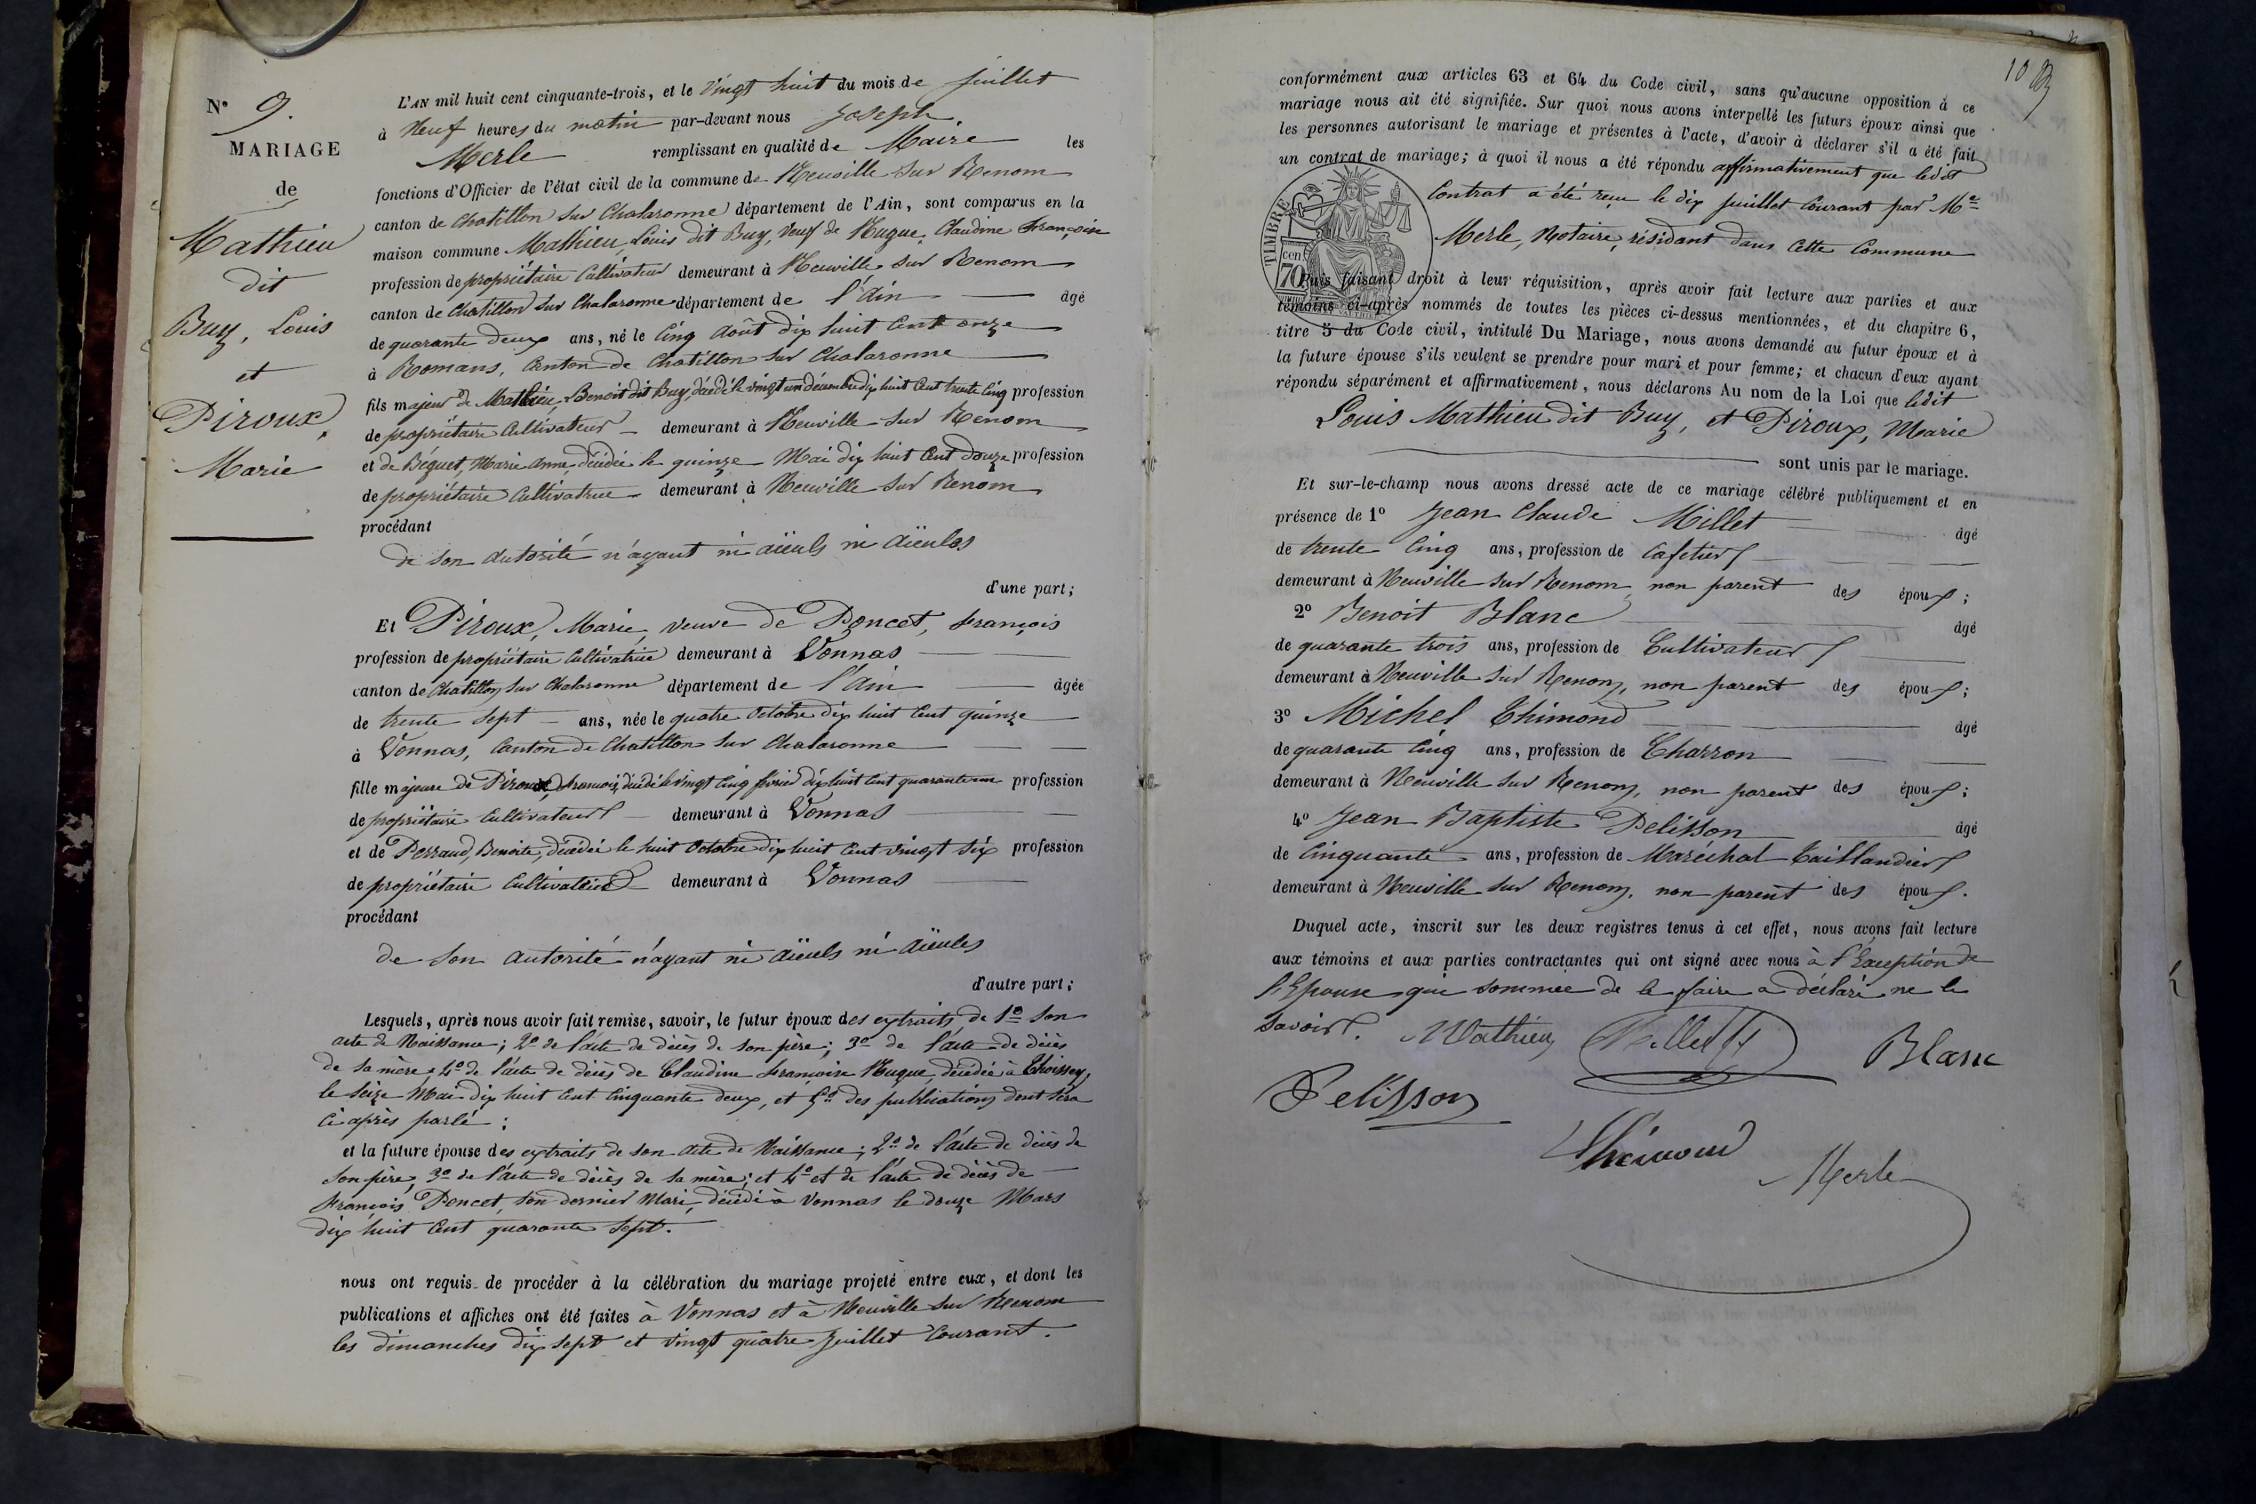 N° 9.
MARIAGE
de
Mathieu
dit
Buy, Louis
et
Piroux,
Marie
L'AN mil huit cent cinquante-trois, et le Vingt huit du mois de Juillet
à Neuf heures du matin par-devant nous Joseph
Merle remplissant en qualité de Maire les
fonctions d'Officier de l'état civil de la commune de Neuville sur Renom
canton de Chatillon sur Chalaronne département de l'Ain, sont comparus en la
maison commune Mathieu, Louis dit Buy, Veuf de Nugue, Claudine Françoise
profession de propriétaire Cultivateur demeurant à Neuville sur Renom
canton de Chatillon sur Chalaronne département de l'Ain âgé
de quarante deux ans, né le Cinq Août dix huit Cent onze
à Romans, Canton de Chatillon sur Chalaronne
fils majeur de Mathieu, Benoit dit Buy, décédé le vingt un décembre dix huit Cent trente Cinq profession
de propriétaire Cultivateur demeurant à Neuville sur Renom
et de Béguet, Marie Anne, décédée le quinze Mai dix huit Cent douze profession
de propriétaire Cultivatrice demeurant à Neuville sur Renom
procédant
de son autorité n'ayant ni aïeuls ni aïeules
d'une part;
Et Piroux, Marie, veuve de Poncet, François
profession de propriétaire Cultivatrice demeurant à Vonnas
canton de Chatillon sur Chalaronne département de l'Ain âgée
de trente sept ans, née le quatre Octobre dix huit Cent quinze
à Vonnas, Canton de Chatillon sur Chalaronne
fille majeure de Piroux, François, décédé le vingt Cinq février dix huit Cent quarante un profession
de propriétaire Cultivateur demeurant à Vonnas
et de Perraud, Benoite, décédée le huit Octobre dix huit Cent vingt six profession
de propriétaire Cultivatrice demeurant à Vonnas
procédant
de son autorité n'ayant ni aïeuls ni aïeules
d'autre part;
Lesquels, après nous avoir fait remise, savoir, le futur époux des extraits de 1° son
acte de Naissance; 2° de l'acte de décès de son père; 3° de l'acte de décès
de sa mère; 4° de l'acte de décès de Claudine Françoise Nugue, décédée à Thoissey,
le seize Mai dix huit Cent Cinquante deux, et 5° des publications dont sera
Ci après parlé;
et la future épouse des extraits de son acte de Naissance; 2° de l'acte de décès de
son père, 3° de l'acte de décès de sa mère; et 4° et de l'acte de décès de
François Poncet, son dernier Mari, décédé à Vonnas le douze Mars
dix huit Cent quarante sept.
nous ont requis de procéder à la célébration du mariage projeté entre eux, et dont les
publications et affiches ont été faites à Vonnas et à Neuville sur Renom
les dimanches dix sept et vingt quatre Juillet Courant.
10
conformément aux articles 63 et 64 du Code civil, sans qu'aucune opposition à ce
mariage nous ait été signifiée. Sur quoi nous avons interpellé les futurs époux ainsi que
les personnes autorisant le mariage et présentes à l'acte, d'avoir à déclarer s'il a été fait
un contrat de mariage; à quoi il nous a été répondu affirmativement que ledit
Contrat a été reçu le dix Juillet Courant par Me
Merle, Notaire, résidant dans Cette Commune
TIMBRE
cent
70
Puis faisant droit à leur réquisition, après avoir fait lecture aux parties et aux
témoins ci-après nommés de toutes les pièces ci-dessus mentionnées, et du chapitre 6,
titre 5 du Code civil, intitulé Du Mariage, nous avons demandé au futur époux et à
la future épouse s'ils veulent se prendre pour mari et pour femme; et chacun d'eux ayant
répondu séparément et affirmativement, nous déclarons Au nom de la Loi que ledit
Louis Mathieu dit Buy, et Piroux, Marie
sont unis par le mariage.
Et sur-le-champ nous avons dressé acte de ce mariage célébré publiquement et en
présence de 1° Jean Claude Millet âgé
de trente Cinq ans, profession de Cafetier
demeurant à Neuville sur Renom, non parent des époux;
2° Benoit Blanc âgé
de quarante trois ans, profession de Cultivateur
demeurant à Neuville sur Renom, non parent des époux;
3° Michel Thimond âgé
de quarante Cinq ans, profession de Charron
demeurant à Neuville sur Renom, non parent des époux;
4° Jean Baptiste Pelisson âgé
de Cinquante ans, profession de Maréchal Taillandier
demeurant à Neuville sur Renom, non parent des époux.
Duquel acte, inscrit sur les deux registres tenus à cet effet, nous avons fait lecture
aux témoins et aux parties contractantes qui ont signé avec nous à l'Exception de
l'Epouse qui sommée de le faire a déclaré ne le
savoir. Mathieu Millet Blanc
Pelisson
Thimond
Merle